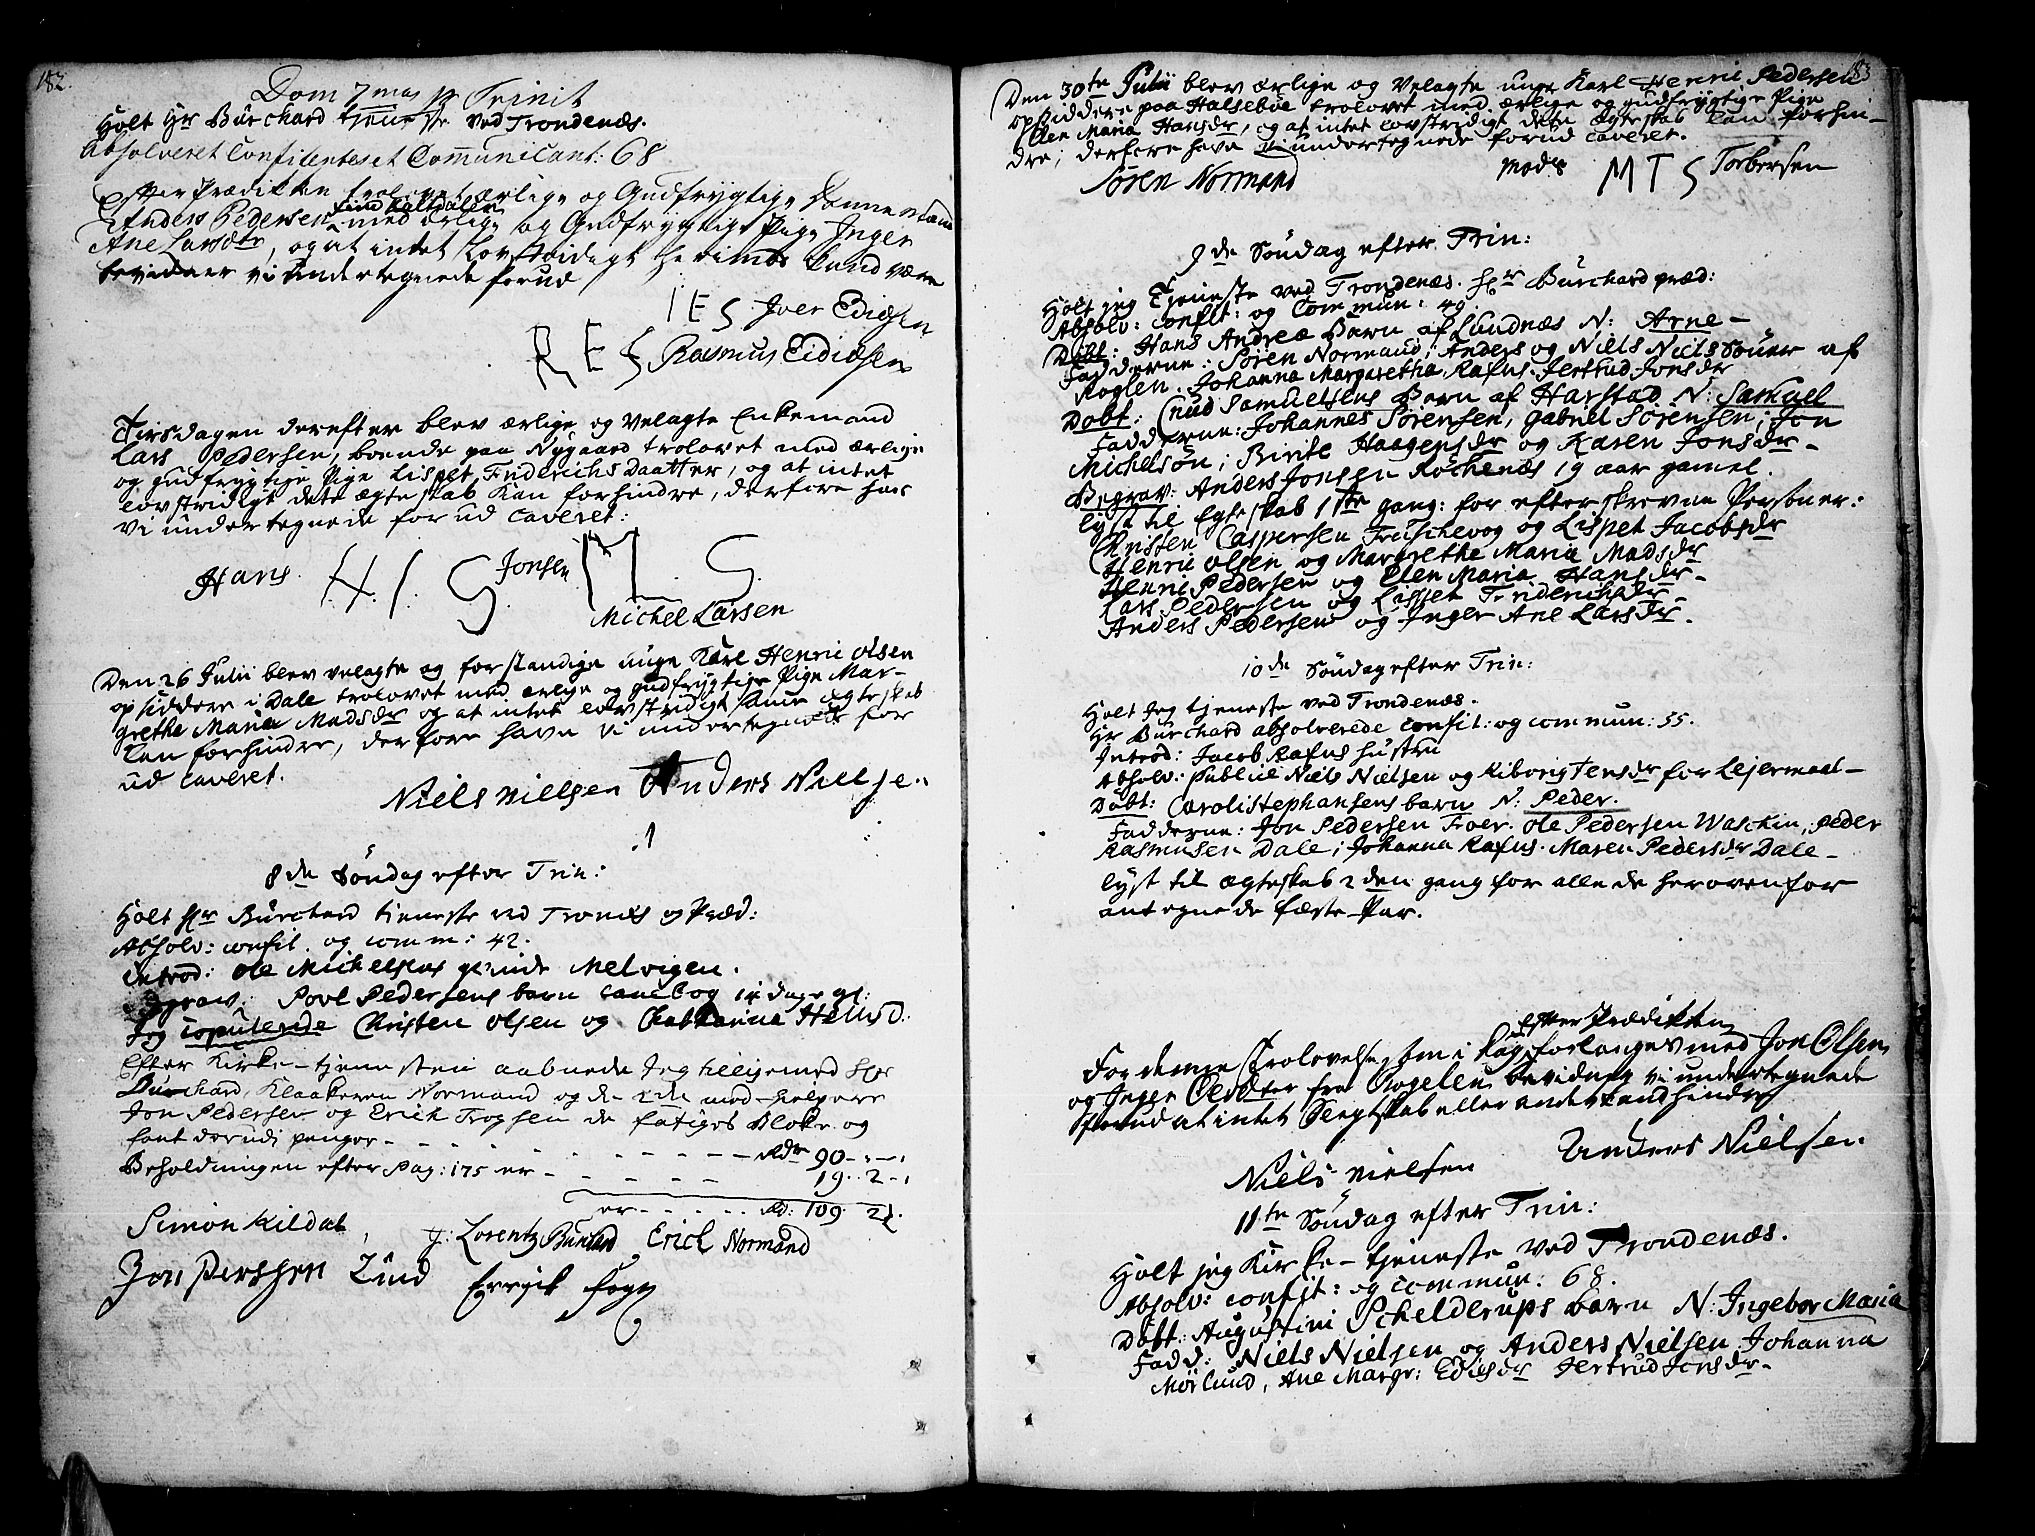 182.
Dom 7mas p Trinit
Holt Hr Bürchard tjeneste ved Trondenæs.
Absolveret Confitentes et Communicant: 68
Efter Prædikken trolovet ærlige og Gudfrygtige Danne
Anders Pedersen med ærlige og Gudfrygtige Pige Inger
Ane Larsdtr, og at intet Lovstridigt herimod kand være
bevidner vi undertegnede forud
I E S Joer Edisen
R E S Rasmus Eidisen
Tirsdagen derefter blev ærlige og velagte Enkemand
Lars Pedersen, boende paa Nygaard trolovet med ærlige
og gudfrygtige Pige Lispet Friderichs Daatter, og at intet
lovstridigt dete ægteskab kan forhindre, derfore have
vi undertegnede forud caveret:
Hans H. I. S. Jonsen M. S.
Michel Larsen
Den 26 Julii blev velagte og forstandige unge Karl Henric Olsen
opsiddere i Dale trolovet med ærlige og gudfrygtige Pige Mar-
grethe Maria Madsdr og at intet lovstridigt samme ægteskab
kan forhindre, derfore have vi undertegnede for
ud caveret.
Niels Nielsen Anders Nielsen
8de Søndag efter Trin:
Holt Hr Bürchard tjeneste ved Tronæs og Præd:
Absolv: confit. og comm: 42.
Introd: Ole Michelsens qvinde Melvigen.
Begrav: Povl Pedersens barn 14 dage gl.
Jeg copulerede Christen Olsen og Cathrina Hansd.
Efter Kirke-tjenesten aabnede Jeg tilligemed Hr
Burchard, Klaakeren Normand og de 2de med-hielpere
Jon Pedersen og Erich Trogsen de fatiges Blok og
fant derudi penger - - - - - - Rdr 90 - " - "
Beholdningen efter pag: 175 er - - - - - 19 .. 2 - "
er - - - - - Rd: 109. 2 .
Simon Kildal, J: Lorentz Burchard Erich Normand
Jon Perssen Lind Errick
183
Den 30te Julii blev ærlige og velagte unge Karl Henric Pedersen
opsiddere paa Halsebøe trolovet med ærlige og gudfrygtige Pige
Ellen Maria Hansdr, og at intet lovstridigt dete ægteskab kan forhin-
dre, derfore have vi undertegnede forud caveret.
Søren Normand Mads M T S Torbersen
9de Søndag efter Trin:
Holt jeg Tjeneste ved Trondenæs. Hr Bürchard præd:
Absolv: confit: og Commun: 49
Døbt: Hans Andreæ Barn af Lundnæs N: Arne -
Fadderne: Søren Normand, Anders og Niels Nielssøner af
Roglen. Johanna Margaretha Rafus. Jertrud Jonsdr
Døbt: Cnud Samuelsens Barn af Harstad N: Samuel
Fadderne: Johannes Sørensen, Gabriel Sørensen, Jon
Michelsøn, Birite Haagensdr og Karen Jonsdr -
Begrav: Anders Jonsen Rochenæs 19 aar gamel.
Lyst til Egteskab 1ste gang: for efterskrevne Personer:
Christen Caspersen Fruschevog og Lispet Jacobsdr
Henric Olsen og Margrethe Maria Madsdr
Henric Pedersen og Elen Maria Hansdr -
Lars Pedersen og Lisset Friderichsdr -
Anders Pedersen og Inger Ane Larsdr.
10de Søndag efter Trin:
Holt Jeg tjeneste ved Trondenæs.
Hr Bürchard absolverede confit: og commun: 55.
Introd: Jacob Rafus hustru
Absolv: publicè Niels Nielsen og Kiborg Tensdr for Lejermaal -
Døbt: Caroli Stephansens barn N: Peder.
Fadderne: Jon Pedersen Froer. Ole Pedersen Waschin, Peder
Rasmusen Dale, Johanna Rafus. Maren Pedersdr Dale -
lyst til ægteskab 2den gang for alle de herovenfor
antegnede fæste-Par.
efter Prædikken
For denne Trolovelse som i Dag forlanges med Jon Olsen
og Inger Olsdtter fra Rogelen bevidner vi undertegnede
forud at intet Slegtskab eller andet kand hendre
Niels Nielsen Anders Nielsen.
11te Søndag efter Trin:
Holt jeg Kirke-tjeneste ved Trondenæs.
Absolv: confit: og commun: 68.
Døbt: Augustini Schelderups barn N: Ingebor Maria
Fadd: Niels Nielsen og Anders Nielsen Johanna
Mørlund, Ane Margr: Edisdr Jertrud Jonsdr -